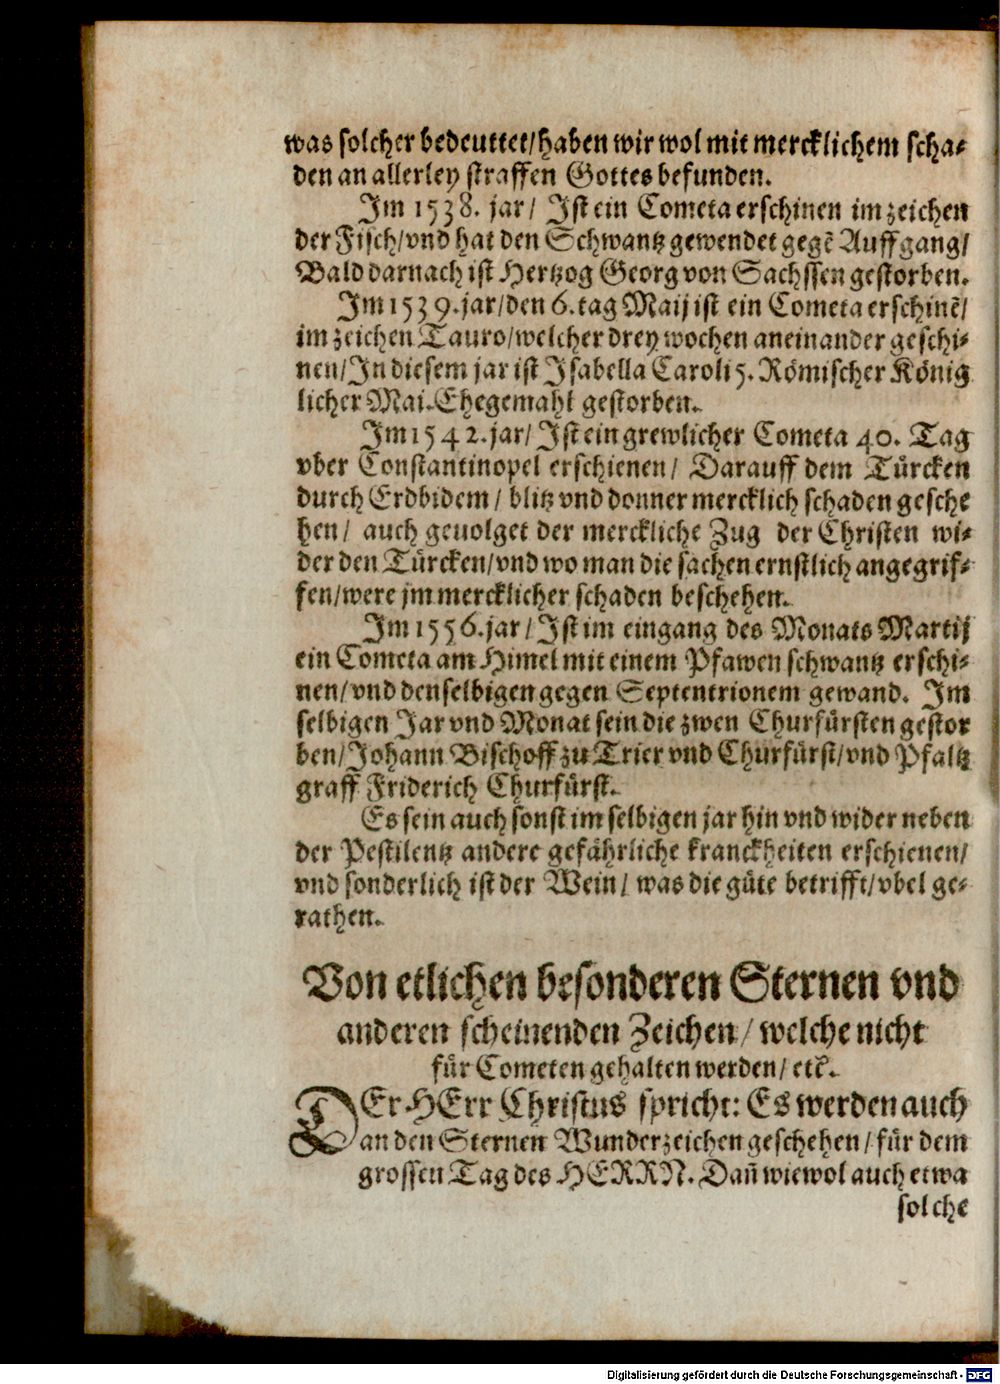 was solcher bedeuttet/haben wir wol mit mercklichem scha-
den an allerley straffen Gottes befunden.
Im 1538. jar/ Ist ein Cometa erschinen im zeichen
der Fisch/vnd hat den Schwantz gewendet gegē Auffgang/
Bald darnach ist Hertzog Georg von Sachssen gestorben.
Im 1539. jar/den 6. tag Maij ist ein Cometa erschinē/
im zeichen Tauro/welcher drey wochen aneinander geschi-
nen/In diesem jar ist Isabella Caroli 5. Römischer König
licher Mai. Ehegemahl gestorben.
Im 1542. jar/ Ist ein grewlicher Cometa 40. Tag
vber Constantinopel erschienen/ Darauff dem Türcken
durch Erdbidem/ blitz vnd donner mercklich schaden gesche
hen/ auch geuolget der merckliche Zug der Christen wi-
der den Türcken/vnd wo man die sachen ernstlich angegrif-
fen/were jm mercklicher schaden beschehen.
Im 1556. jar/ Ist im eingang des Monats Martij
ein Cometa am Himel mit einem Pfawen schwantz erschi-
nen/vnd denselbigen gegen Septentrionem gewand. Im
selbigen Jar vnd Monat sein die zwen Churfürsten gestor
ben/Johann Bischoff zu Trier vnd Churfürst/vnd Pfaltz
graff Friderich Churfürst.
Es sein auch sonst im selbigen jar hin vnd wider neben
der Pestilentz andere gefährliche kranckheiten erschienen/
vnd sonderlich ist der Wein/ was die güte betrifft/vbel ge-
rathen.
Von etlichen besonderen Sternen vnd
anderen scheinenden Zeichen/ welche nicht
für Cometen gehalten werden/ etc̃.
DEr HErr Christus spricht: Es werden auch
an den Sternen Wunderzeichen geschehen/ für dem
grossen Tag des HERRN. Dañ wiewol auch etwa
solche
Digitalisierung gefördert durch die Deutsche Forschungsgemeinschaft - DFG